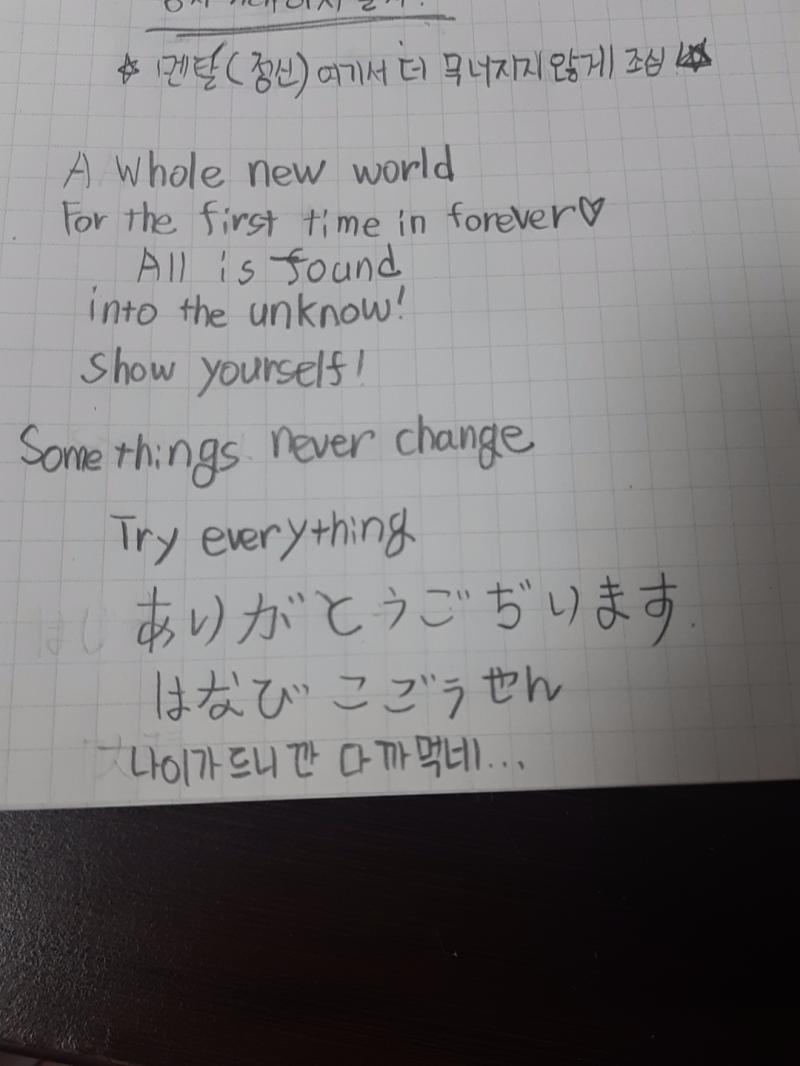 ☆ 멘탈(정신) 여기서 더 무너지지 않게 조심 ☆
A whole new world
For the first time in forever♡
All is found
into the unknow!
Show yourself!
Some things never change
Try everything
ありがとうごぢいます.
はなび こごうせん
나이가 드니깐 다 까먹네...